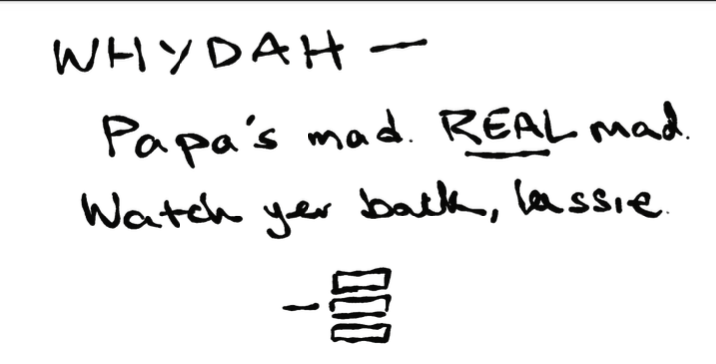 WHYDAH —
Papa's mad. REAL mad.
Watch yer back, lassie.